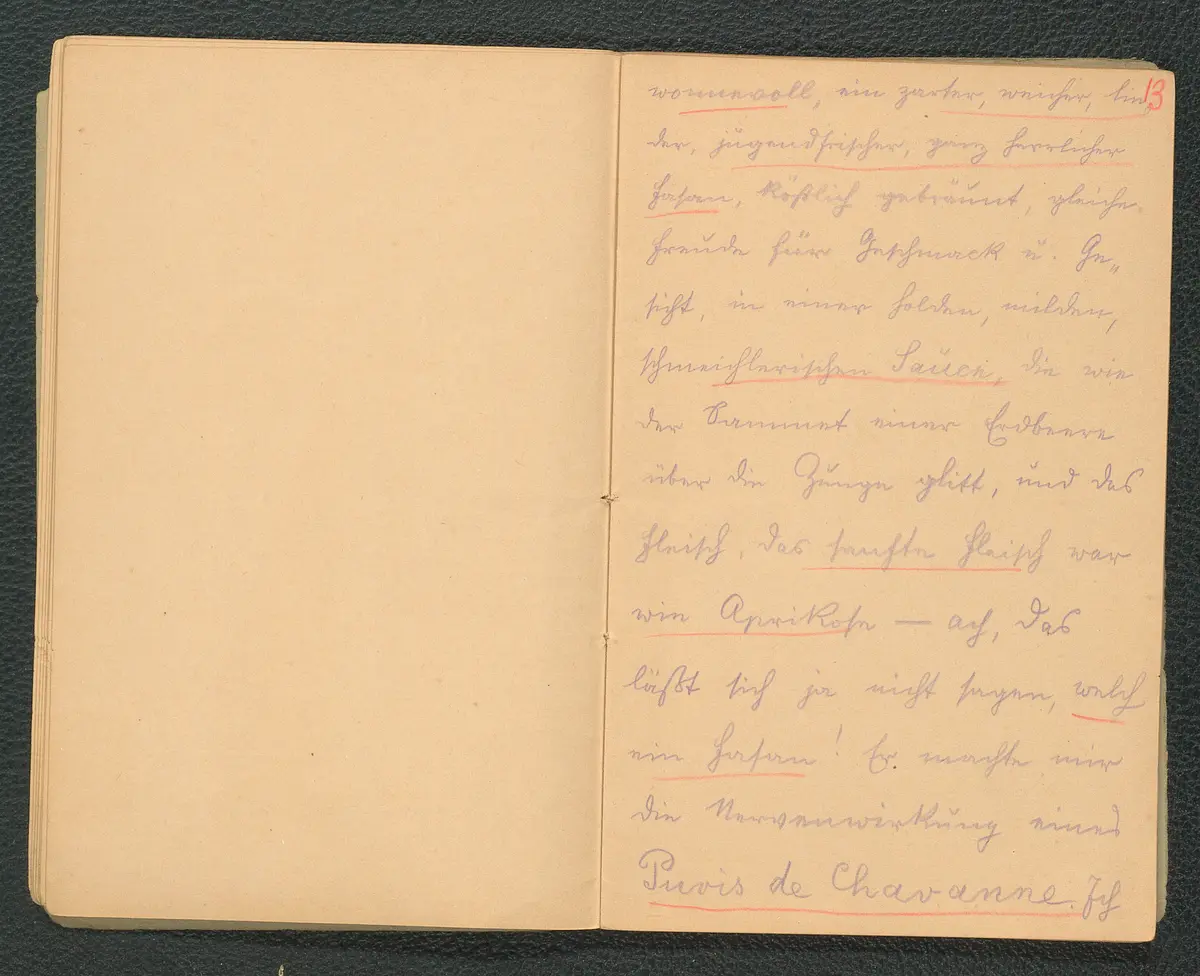 13
wonnevoll, ein zarter, weicher, lin„
der, jugendfrischer, ganz herrlicher
Fasan, köstlich gebräunt, gleiche
Freude für Geschmack u. Ge„
sicht, in einer holden, milden,
schmeichlerischen Sauce, die wie
der Sammet einer Erdbeere
über die Zunge glitt, und das
Fleisch, das sanfte Fleisch war
wie Aprikose — ach, das
läßt sich ja nicht sagen, welch
ein Fasan! Er machte mir
die Nervenwirkung eines
Puvis de Chavanne. Ich